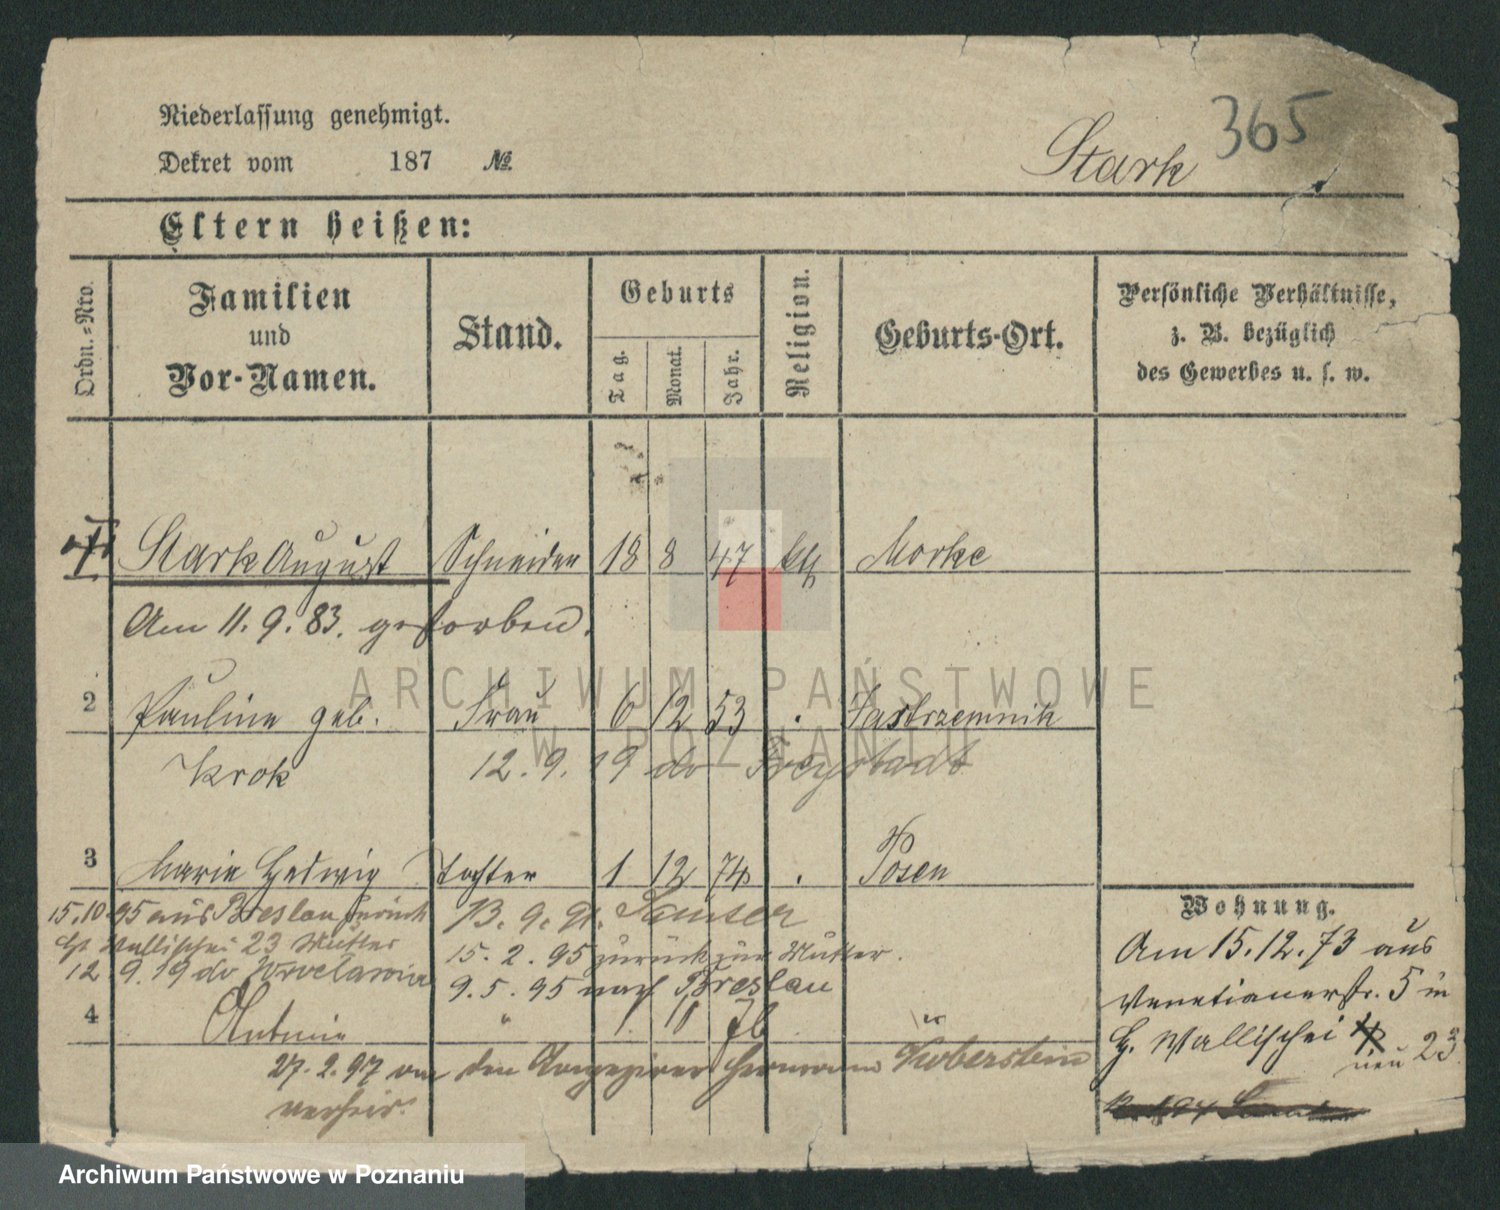 Niederlassung genehmigt.
Dekret vom 187 №
Stark 365
Eltern heißen:
Ordn.=Nro.
Familien
und
Vor-Namen.
Stand.
Geburts
Tag.
Monat.
Jahr.
Religion.
Geburts-Ort.
Persönliche Verhältnisse,
z. B. bezüglich
des Gewerbes u. s. w.
1 Stark August Schneider 18 8 47 kth Morke
Am 11. 9. 83. gestorben.
2 Pauline geb. Frau 6 12 53 . Jastrzemnik
Krok 12. 9. 19 do Freystadt
3 Marie Hedwig Tochter 1 12 74 . Posen
15.10.95 aus Breslau zurück B. 9. gr.
Wallischei 23 Mutter 15. 2. 95 zurück zur Mutter.
12. 9. 19 do Wrocławia 9. 5. 95 nach Breslau
4 Antonie " 1 11 76
27. 2. 97 an den Hermann Küberstein
verheir.
Wohnung.
Am 15.12.73 aus
Venetianerstr. 5 in
H. Wallischei
neu 23
ARCHIWUM PAŃSTWOWE
W POZNANIU
Archiwum Państwowe w Poznaniu